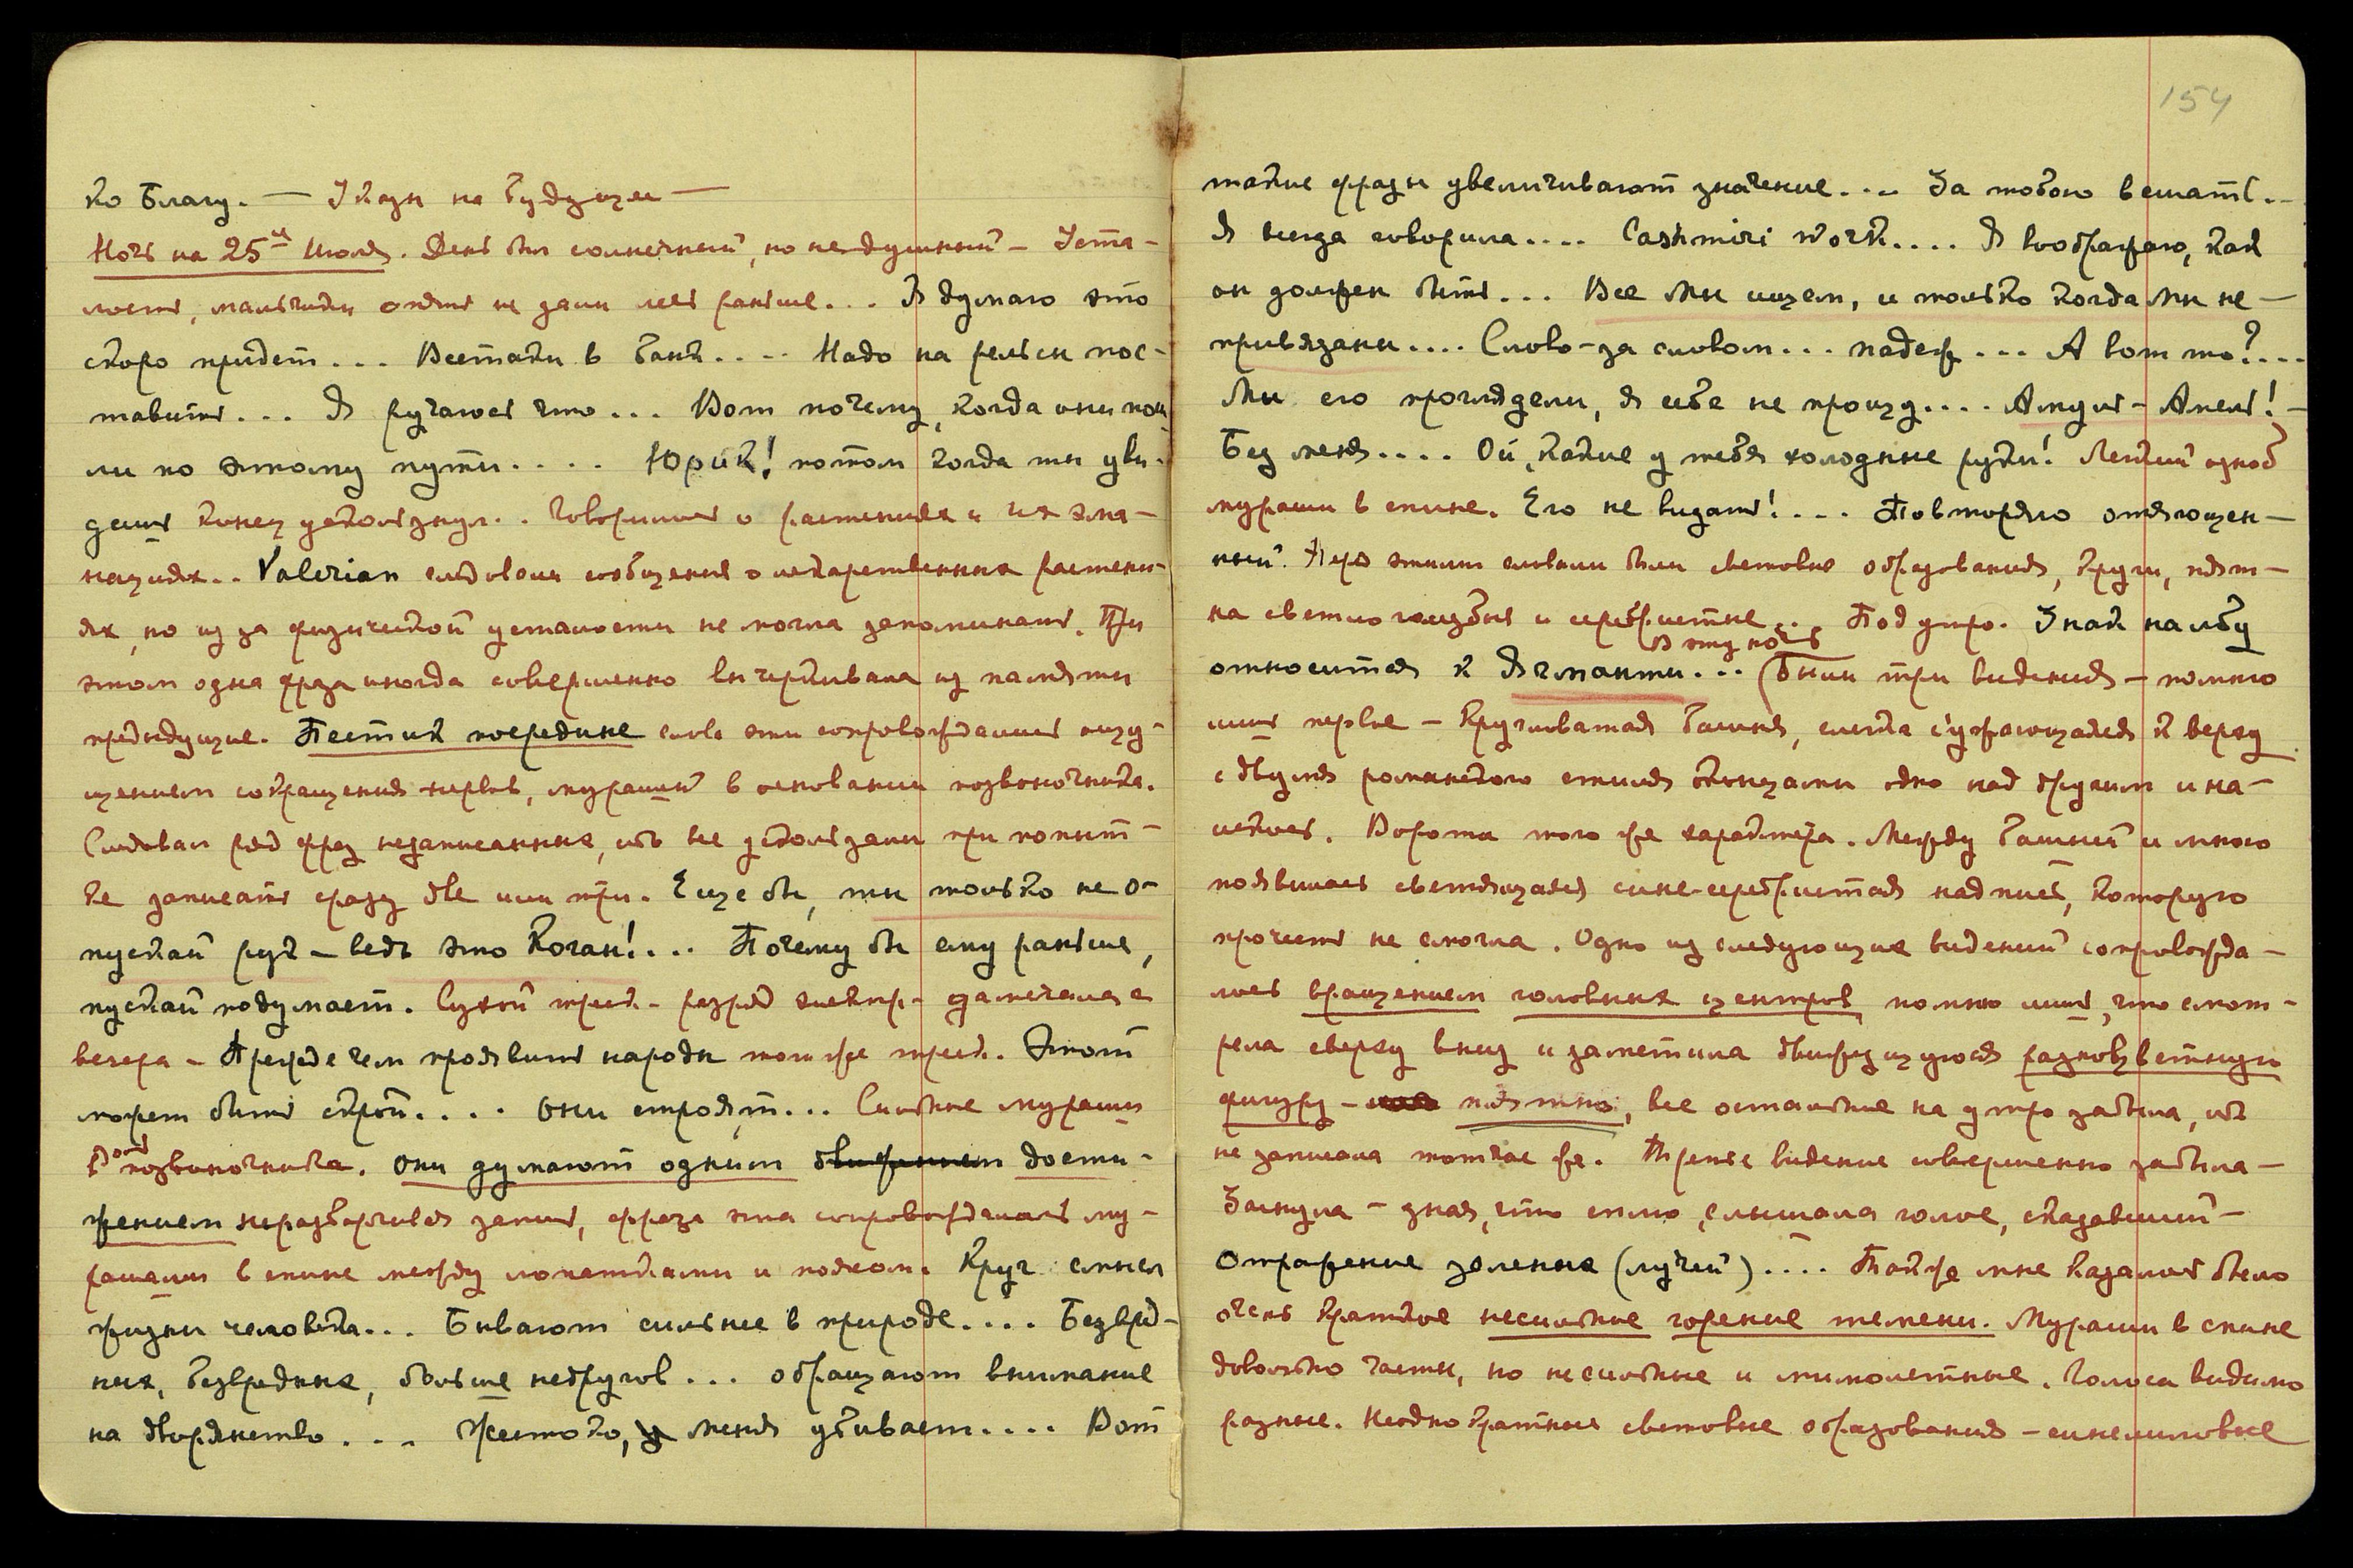 ко Благу. — Указы на будущем —
Ночь на 25ое Июля. День был солнечный, но не душный – Уста-
лость, мальчики опять не дали лечь раньше... Я думаю это
скоро придет... Всетаки в банк.... Надо на рельсы пос-
тавить... Я ручаюсь что... Вот почему, когда они пош
ли по этому пути.... Юрик! потом когда ты уви-
дишь конец ускользнул.. Говорилось о растениях и их эма-
нациях.. Valerian следовали сообщения о лекарственных растени-
ях, но из за физической усталости не могла запоминать. При
этом одна фраза иногда совершенно вычеркивала из памяти
предыдущие. Пестик посередине слова эти сопровождались ощу-
щением сокращения нервов, мурашей в основании позвоночника.
Следовал ряд фраз незаписанных, ибо все ускользали при попыт-
ке записать сразу две или три. Еще бы, ты только не о-
пускай рук – ведь это Коган!... Почему бы ему раньше,
пускай подумает. Сухой треск - разряд электр-
вечера – Прежде чем проявить народы тот же треск. Этот
может быть строй.... они строят... Сильные мураши
позвоночника. Они думают одним движением дости-
жением неразборчивая запись, фраза эта сопровождалась му-
рашами в спине между лопатками и поясом. Круг смысл
жизни человека... Бывают сильнее в природе.... Безвред-
ных, безвредных, больше недругов... обращают внимание
на дворянство... Жестоко, меня убивает.... Вот
154
такие фразы увеличивают значение... За тобою вешать..
Я всегда говорила.... Cashmiri work.... Я воображаю, как
он должен быть... Все мы ищем, и только когда мы не-
привязаны.... Слово-за словом... падеж... А вот то?...
Мы его проглядели, я себе не прощу.... Амуль-Амель! –
Без меня.... Ой, какие у тебя холодные руки! Легкий озноб
мураши в спине. Его не видать!... Повторяю отягощен-
ный. Перед этими словами были световые образования, круги, пят-
на светло голубые и серебристые.. Под утро. Знак на лбу
В эту ночь
относится к Ячманти... (Были три видения – помню
лишь первое – Кругловатая башня, слегка суживающаяся к верху
с двумя романского стиля оконцами одно над другим и на-
искось. Ворота того же характера. Между башней и мною
появилась светящаяся сине-серебристая надпись, которую
прочесть не смогла. Одно из следующих видений сопровожда-
лось вращением головных центров помню лишь, что смот-
рела сверху вниз и заметила движущуюся разноцветную
фигуру – пятно, все остальные на утро забыла, ибо
не записала тотчас же. Третье видение совершенно забыла –
Заснула – зная, что сплю, слышала голос, сказавший –
Отражение зеленых (лучей).... Также мне казалось было
очень краткое несильное горение темени. Мураши в спине
довольно часты, но несильные и мимолетные. Голоса видимо
разные. Неоднократные световые образования – синелиловые